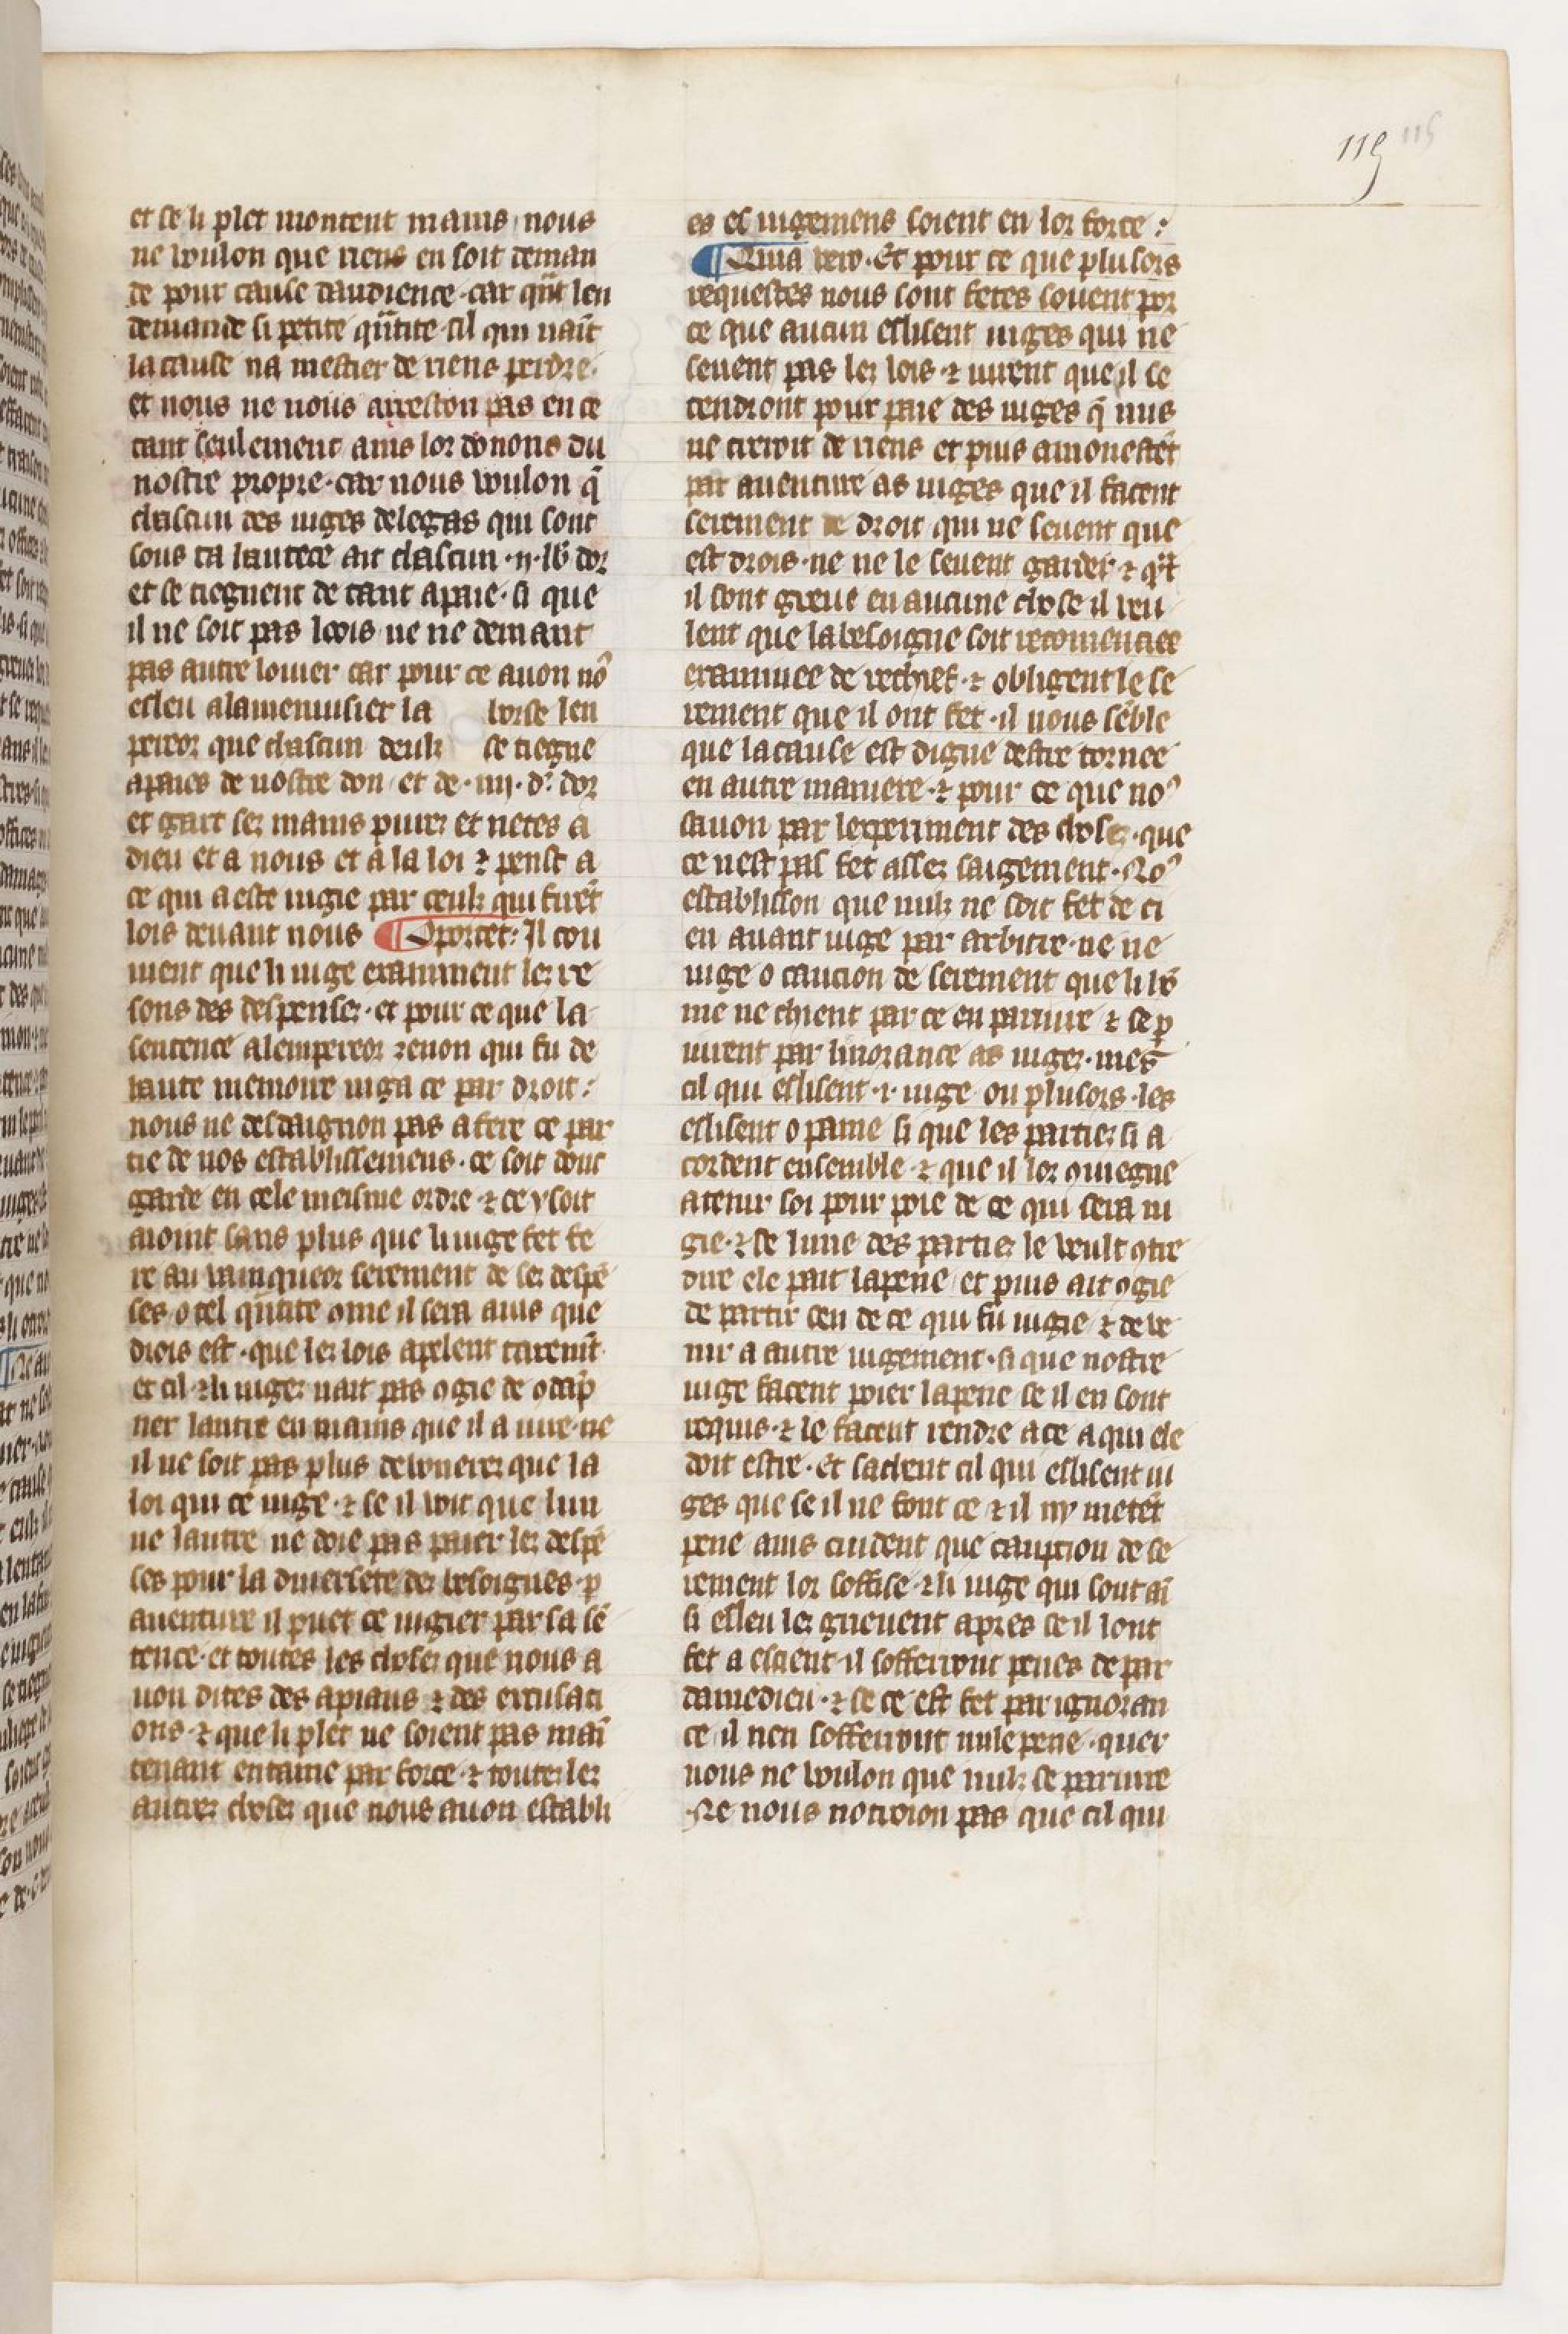 119 115
et se li plet montent mains nous
ne voulon que riens en soit deman
de pour cause daudience · car qñt len
demande si petite qñtite · cil qui vaīt
la cause na mestier de riens perdre ·
et nous ne nous arreston pas en ce
tant seulement ains lor donons du
nostre propre · car nous voulon q̄
chascun des iuges delegas qui sont
sous ta hautece ait chascun · ii · lb̄ dor
et se tiegnent de tant apaie · si que
il ne soit pas lois ne ne demant
pas autre louier car pour ce auon no᷒
esleu alamenuisier la borse len
pereor que chascun deulz se tiegne
apaies de nostre don et de · iiii · d᷒ · dor
et gart sez mains purez et netes a
dieu et a nous et a la loi ⁊ penst a
ce qui a este iugie par ceulz qui furēt
lois deuant nous ¶ Oportet : Il cou
uient que li iuge examinent lez re
sons des despensez · et pour ce que la
sentence alempereor zenon qui fu de
haute memoire iuga ce par droit :
nous ne desdaignon pas a fere ce par
tie de nos establissemens · ce soit dont
garde en cele meisme ordre ⁊ ce y soit
aioint sans plus que li iuge fet fe
re au vainqueor serement de sez despē
ses o tel qñtite ome il sera auis que
drois est · que lez lois apelent taxenīt ·
et cil ⁊ li iugez nait pas ogie de odāp
ner lautre en mains que il a iure · ne
il ne soit pas plus debonerez que la
loi qui ce iuge · ⁊ se il voit que lun
ne lautre ne doie pas paier lez despē
ses pour la diuersete dez besoignes · p
auenture il puet ce iugier par sa sē
tence · et toutes les chosez que nous a
uon dites des apiaus ⁊ des excusaci
ons · ⁊ que li plet ne soient pas maī
tenant entame par force · ⁊ toutez lez
autrez chosez que nous auon establi
es es iugemens soient en lor force :
¶ Quia vero · Et pour ce que plusors
requestes nous sont fetes souent por
ce que aucun eslisent iuges qui ne
seuent pas lez lois · ⁊ iurent que il se
tendront pour paie des iuges q̄ nus
ne creroit de riens et puis amonestēt
par auenture as iuges que il facent
serement de droit qui ne seuent que
est drois · ne ne le seuent garder · ⁊ qn̄t
il sont greue en aucune chose il veu
lent que la besoigne soit recomenciee
examinee de rechief · ⁊ obligent le se
rement que il ont fet · il nous sēble
que la cause est digne destre tornee
en autre maniere · ⁊ pour ce que no᷒
sauon par lexperiment des chosez · que
ce nest pas fet assez saigement · No᷒
establisson que nulz ne soit fet de ci
en auant iuge par arbitre · ne ne
iuge o caucion de serement que li hō
me ne chient par ce en pariure ⁊ se p
iurent par linorance as iugez · mes
cil qui eslisent · i · iuge ou plusors · les
eslisent o paine si que les partiez si a
cordent ensemble · ⁊ que il lor ouiegne
a tenir soi pour poie de ce qui sera iu
gie · ⁊ se lune des partiez le veult otre
dire ele pait la pene et puis ait ogie
de partir sen de ce qui fu iugie ⁊ de ve
nir a autre iugement · si que nostre
iuge facent poier la pene se il en sont
requis · ⁊ le facent rendre a ce a qui ele
doit estre · Et sachent cil qui eslisent iu
ges que se il ne font ce ⁊ il ny metēt
pene ains cuident que caupcion de se
rement lor soffise · ⁊ li iuge qui sont aī
si esleu lez grieuent apres se il lont
fet a escient · il sofferront penes de par
damedieu · ⁊ se ce est fet par ignoran
ce il nen sofferront nule pene · quer
nous ne voulon que nulz se pariure
Ne nous notroion pas que cil qui